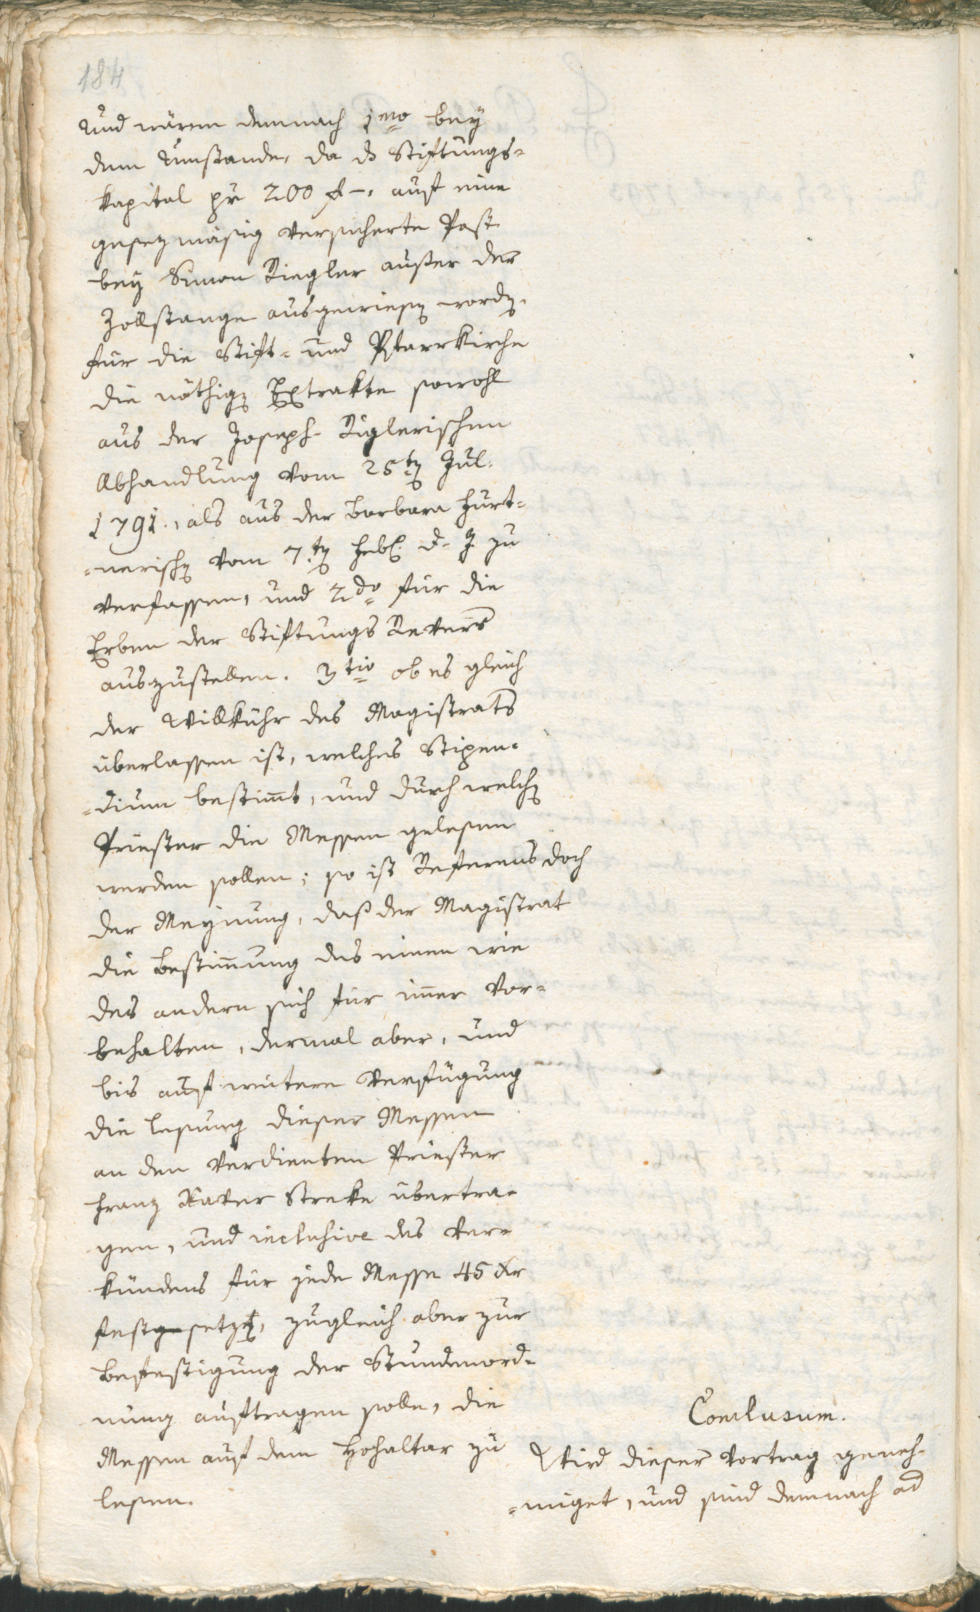 184
Und wären demnach 1mo bey
dem Umstande, da ds Stiftungs-
kapital pr 200 f –, auf eine
gesezmäsig versicherte Post
bey Simon Riegler außer der
Zollstange ausgewiesen worden,
für die Stift- und Pfarrkirche
die nöthigen Extrakte sowohl
aus der Joseph Riglerischen
Abhandlung vom 25ten Jul.
1791., als aus der Barbara Hurt-
-nerischen vom 7.ten d. J. zu
verfassen, und 2do für die
Erben der Stiftungs Revers
auszustellen. 3tio ob es gleich
der Willkühr des Magistrats
überlassen ist, welches Stipen-
-dium bestimt, und durch welchen
Priester die Messen gelesen
werden sollen; so ist Referens doch
der Meynung, daß der Magistrat
die Bestimung des einen wie
des andern sich für imer vor-
behalten, dermal aber, und
bis auf weitere Verfügung
die Lesung dieser Messen
an den verdienten Priester
Franz Xaver Streke übertra-
gen, und inclusive des Ver-
kündens für jede Messe 45 xr
festsetzen, zugleich aber zur
Befestigung der Stundenord-
nung auftragen solle, die
Messen auf dem Hochaltar zu
lesen.
Conclusum.
Wird dieser Vortrag geneh-
-miget, und sind demnach ad